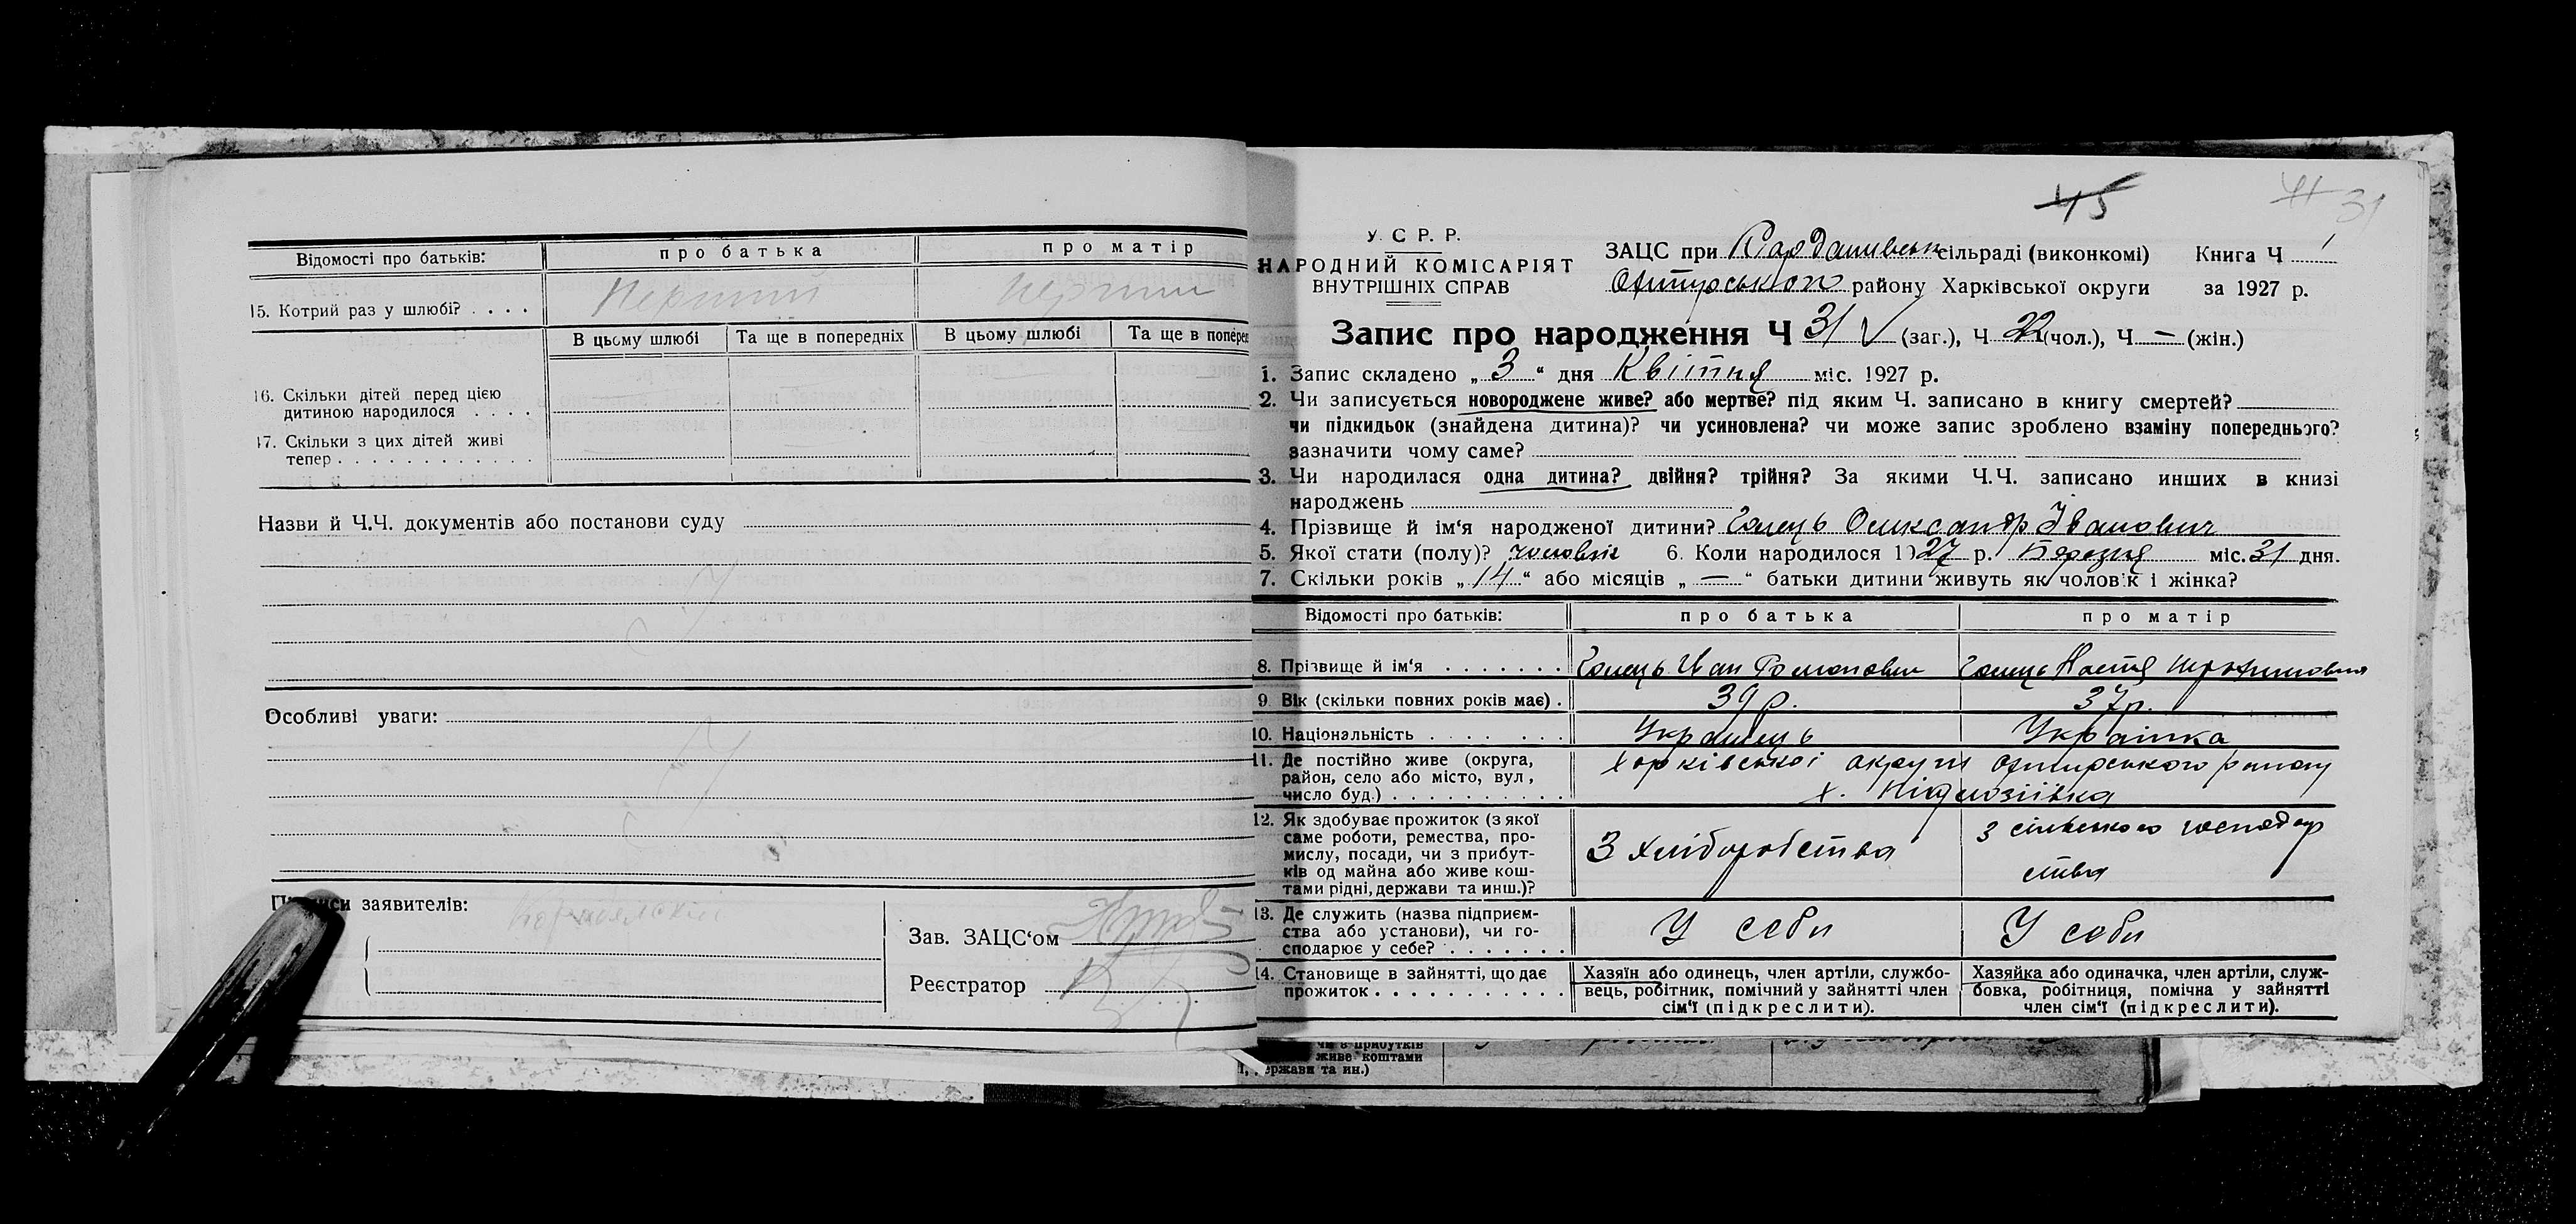 Відомості про батьків: про батька про матір
15. Котрий раз у шлюбі? . . . . Перший Перший
В цьому шлюбі Та ще в попередніх В цьому шлюбі Та ще в поперед
16. Скільки дітей перед цією
дитиною народилося . . . .
17. Скільки з цих дітей живі
тепер . . . . . . . . . . . .
Назви й Ч.Ч. документів або постанови суду
Особливі уваги:
заявителів:
Зав. ЗАЦС‘ом
Реєстратор
45
31
У. С. Р. Р.
НАРОДНИЙ КОМІСАРІЯТ
ВНУТРІШНІХ СПРАВ
ЗАЦС при сільраді (виконкомі) Книга Ч 1
району Харківської округи за 1927 р.
Запис про народження Ч 31 (заг.), Ч 22 (чол.), Ч — (жін.)
1. Запис складено „ 3 “ дня Квітня міс. 1927 р.
2. Чи записується новороджене живе? або мертве? під яким Ч. записано в книгу смертей?
чи підкидьок (знайдена дитина)? чи усиновлена? чи може запис зроблено взаміну попереднього?
зазначити чому саме?
3. Чи народилася одна дитина? двійня? трійня? За якими Ч.Ч. записано инших в книзі
народжень
4. Прізвище й ім‘я народженої дитини? Олександр Іванович
5. Якої стати (полу)? чоловіч 6. Коли народилося 1927 р. Березня міс. 31 дня.
7. Скільки років „ 14 “ або місяців „ — “ батьки дитини живуть як чоловік і жінка?
Відомості про батьків: про батька про матір
8. Прізвище й ім‘я . . . . . . . Іван Романович Настя
9. Вік (скільки повних років має) . 39 р. 37 р.
10. Національність . . . . . . . Українець Українка
11. Де постійно живе (округа,
район, село або місто, вул,
число буд.) . . . . . . . . . .
Харківської округи району
х.
12. Як здобуває прожиток (з якої
саме роботи, ремества, про-
мислу, посади, чи з прибут-
ків од майна або живе кош-
тами рідні, держави та инш.)?
З хліборобства
з сільського господар
ства
13. Де служить (назва підприєм-
ства або установи), чи го-
сподарює у себе? . . . . . . .
У себи У себи
14. Становище в зайнятті, що дає
прожиток . . . . . . . . . . .
Хазяїн або одинець, член артіли, службо-
вець, робітник, помічний у зайнятті член
сім‘ї (підкреслити).
Хазяйка або одиначка, член артіли, служ-
бовка, робітниця, помічна у зайнятті
член сім‘ї (підкреслити).
чи з прибутків
живе коштами
держави та ин.)